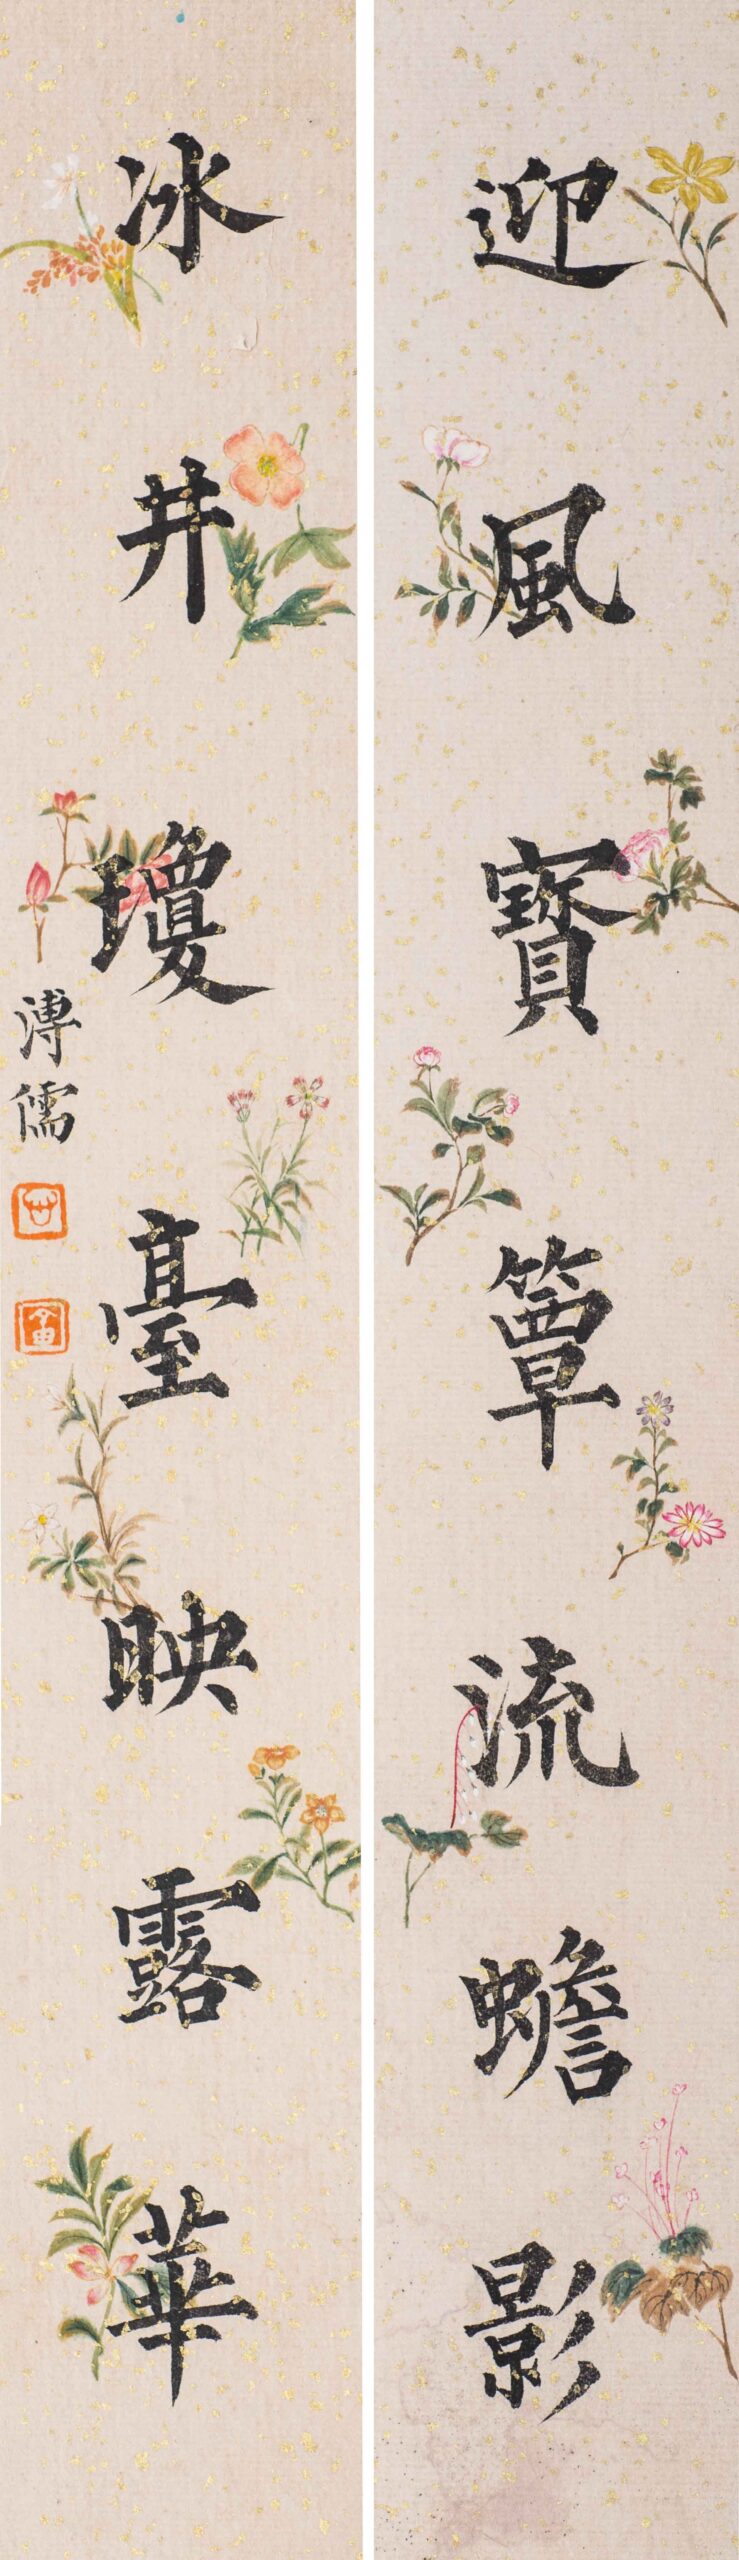 迎風寶簟流蟾影
冰井瓊臺映露華
溥儒